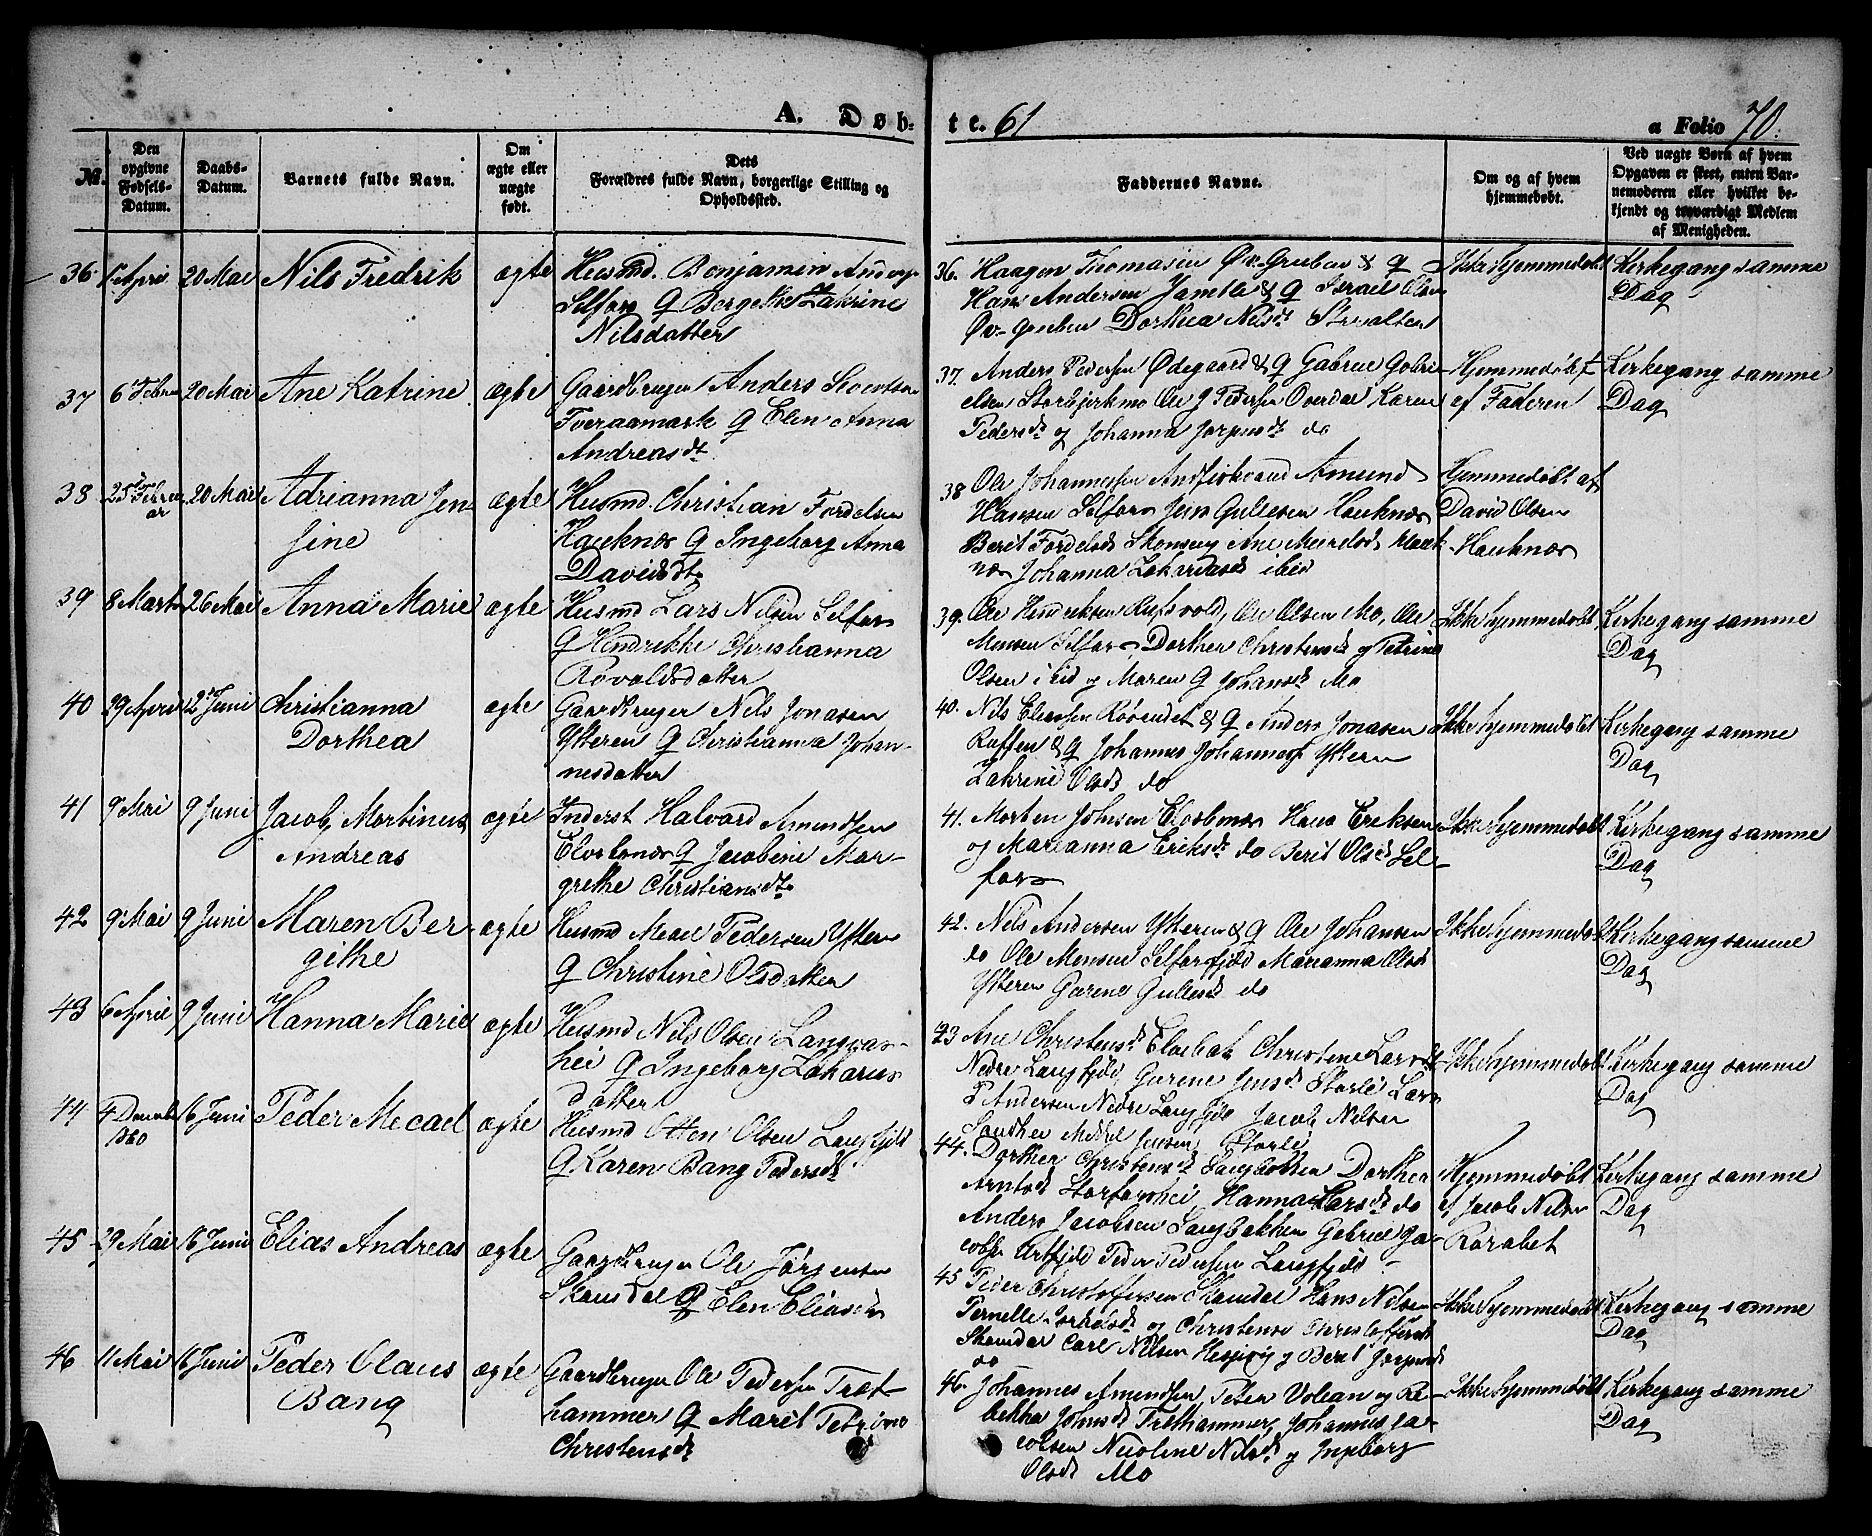 A. Døb- te. 61
a Folio 70.
№.
Den opgivne Fødsels-Datum.
Daabs-Datum.
Barnets fulde Navn.
Om ægte eller uægte født.
Dets Forældres fulde Navn, borgerlige Stilling og Opholdssted.
Faddernes Navne.
Om og af hvem hjemmedøbt.
Ved uægte Børn af hvem Opgaven er skeet, enten Barnemoderen eller hvilket bekjendt og troværdigt Medlem af Menigheden.
36. 20 Mai Nils Fredrik ægte Husmd. Benjamin
Selfors G Nilsdatter
36. Haagen Thomasen Øv. Gruben & G
Hans Andersen & G Israel Olsen
Øv. Gruben Dorthea Nilsdt
Ikke hjemmedøbt
Kirkegang samme
Dag
37 6 Februar 20 Mai Ane Katrine ægte Gaardbruger Anders
Tveraamark G Elen Anna
Andreasdt
37. Anders Pedersen Ødegaard & G Gabriel Gabri-
elsen Storbjerkmo Ole J Pedersen Overdal Karen
Pedersdt og Johanna do
Hjemmedøbt
af Faderen
Kirkegang samme
Dag
38 20 Mai Adrianna Jen-
sine ægte Husmd. Christian Fordelsen
Hauknæs G Ingeborg Anna
Davidsdt
38 Ole Johannessen Amund
Hansen Selfors Jens Gullesen Hauknæs
Berit Fordelsd Ane
Johanna ibid
Hjemmedøbt af
David Olsen
Hauknæs
39 8 Marts 26 Mai Anna Marie ægte Husmd Lars Nilsen Selfors
G Hendrikke Christianna
Rovoldsdatter
39. Ole Hindriksen Ole Olsen Mo, Ole
Monsen Selfors, Dorthea Christensd og Petrine
Olsen ibid og Maren G Johansd Mo
Ikke hjemmedøbt
Kirkegang samme
Dag
40 29 April 2 Juni Christianna
Dorthea ægte Gaardbruger Nils Jonasen
Ytteren G Christianna Johan-
nesdatter
40. Nils Eliassen & G Anders Jonasen
& G Johannes Johannesen Ytteren
Zakrine Olsd do
Ikke hjemmedøbt
Kirkegang samme
Dag
41 9 Mai 9 Juni Jacob Martinus
Andreas ægte Inderst Halvard Amundsen
G Jacobine Mar-
grethe Christiansdt
41. Morten Johnsen Hans Eriksen
og Marianna Eriksdt do Berit Olsd Sel-
fors
Ikke hjemmedøbt
Kirkegang samme
Dag
42 9 Mai 9 Juni Maren Ber-
githe ægte Husmd Pedersen Ytteren
G Christine Olsdatter
42. Nils Andersen Ytteren & G Ole Johansen
do Ole Monsen Selforsfjeld Marianna Olsd
Ytteren Gurene Gullesd do
Ikke hjemmedøbt
Kirkegang samme
Dag
43 6 April 9 Juni Hanna Marie ægte Husmd Nils Olsen
hei G Ingeborg Zakarias
datter
Ane Christensd Christine Larsdt
Nedre Langfjeld, Gurene Jensd Storli Lars
P Andersen Nedre Langfjeld Jacob Nilsen
Jensen Storli
Ikke hjemmedøbt
Kirkegang samme
Dag
44 4 1860 16 Juni Peder Mecael ægte Husmd Otten Olsen Langfjeld
G Karen Bang Pedersdt
44. Dorthea Christensd Langbakken Dorthea
Hanna Larsdt do
Anders Jacobsen Langbakken Gabriel Ja-
cobsen Peder Pedersen Langfjeld
Hjemmedøbt
af Jacob Nilsen
Kirkegang samme
Dag
45 29 Mai 16 Juni Elias Andreas ægte Gaardbruger Ole Jørgensen
Skamdal G Elen Eliasd
45 Peder Christoffersen Skamdal Hans Nilsen
Pernelle og Christense Christoffersdt
Skamdal Carl Nilsen og Berit
do
Ikke hjemmedøbt
Kirkegang samme
Dag
46 11 Mai 16 Juni Peder Olaus
Bang ægte Gaardbruger Ole Pedersen Træt-
hammer G Marit Petrine
Christensdt
46. Johannes Amundsen Peter og Re-
bekka Johnsdt Træthammer, Johannes Ja-
cobsen Nicoline Nilsdt og Ingeborg
Olsdt Mo
Ikke hjemmedøbt
Kirkegang samme
Dag